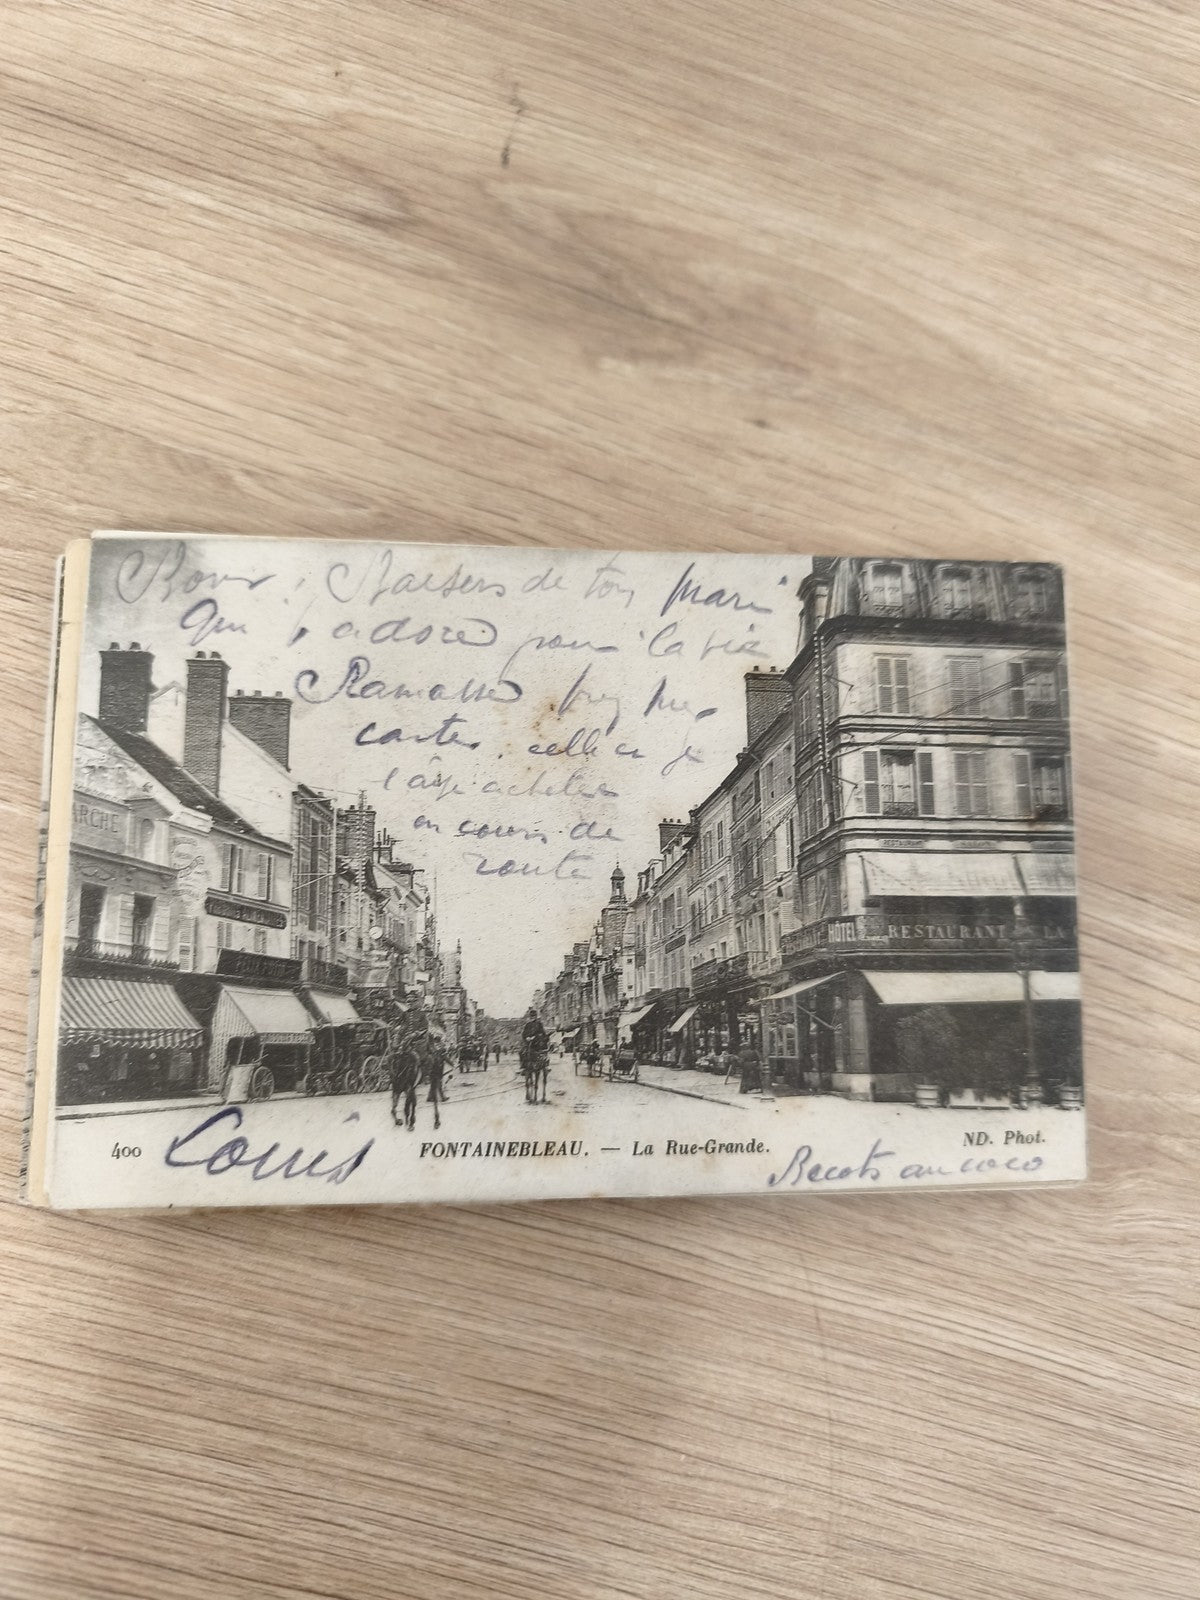 Bons Baisers de ton mari
qui t'adore pour la vie
Ramasse mes
cartes. celle ci je
l'ai acheter
en cours de
route
ARCHE
RESTAURANT
HÔTEL RESTAURANT LA
400 Louis FONTAINEBLEAU. — La Rue-Grande. ND. Phot.
Becots au coco